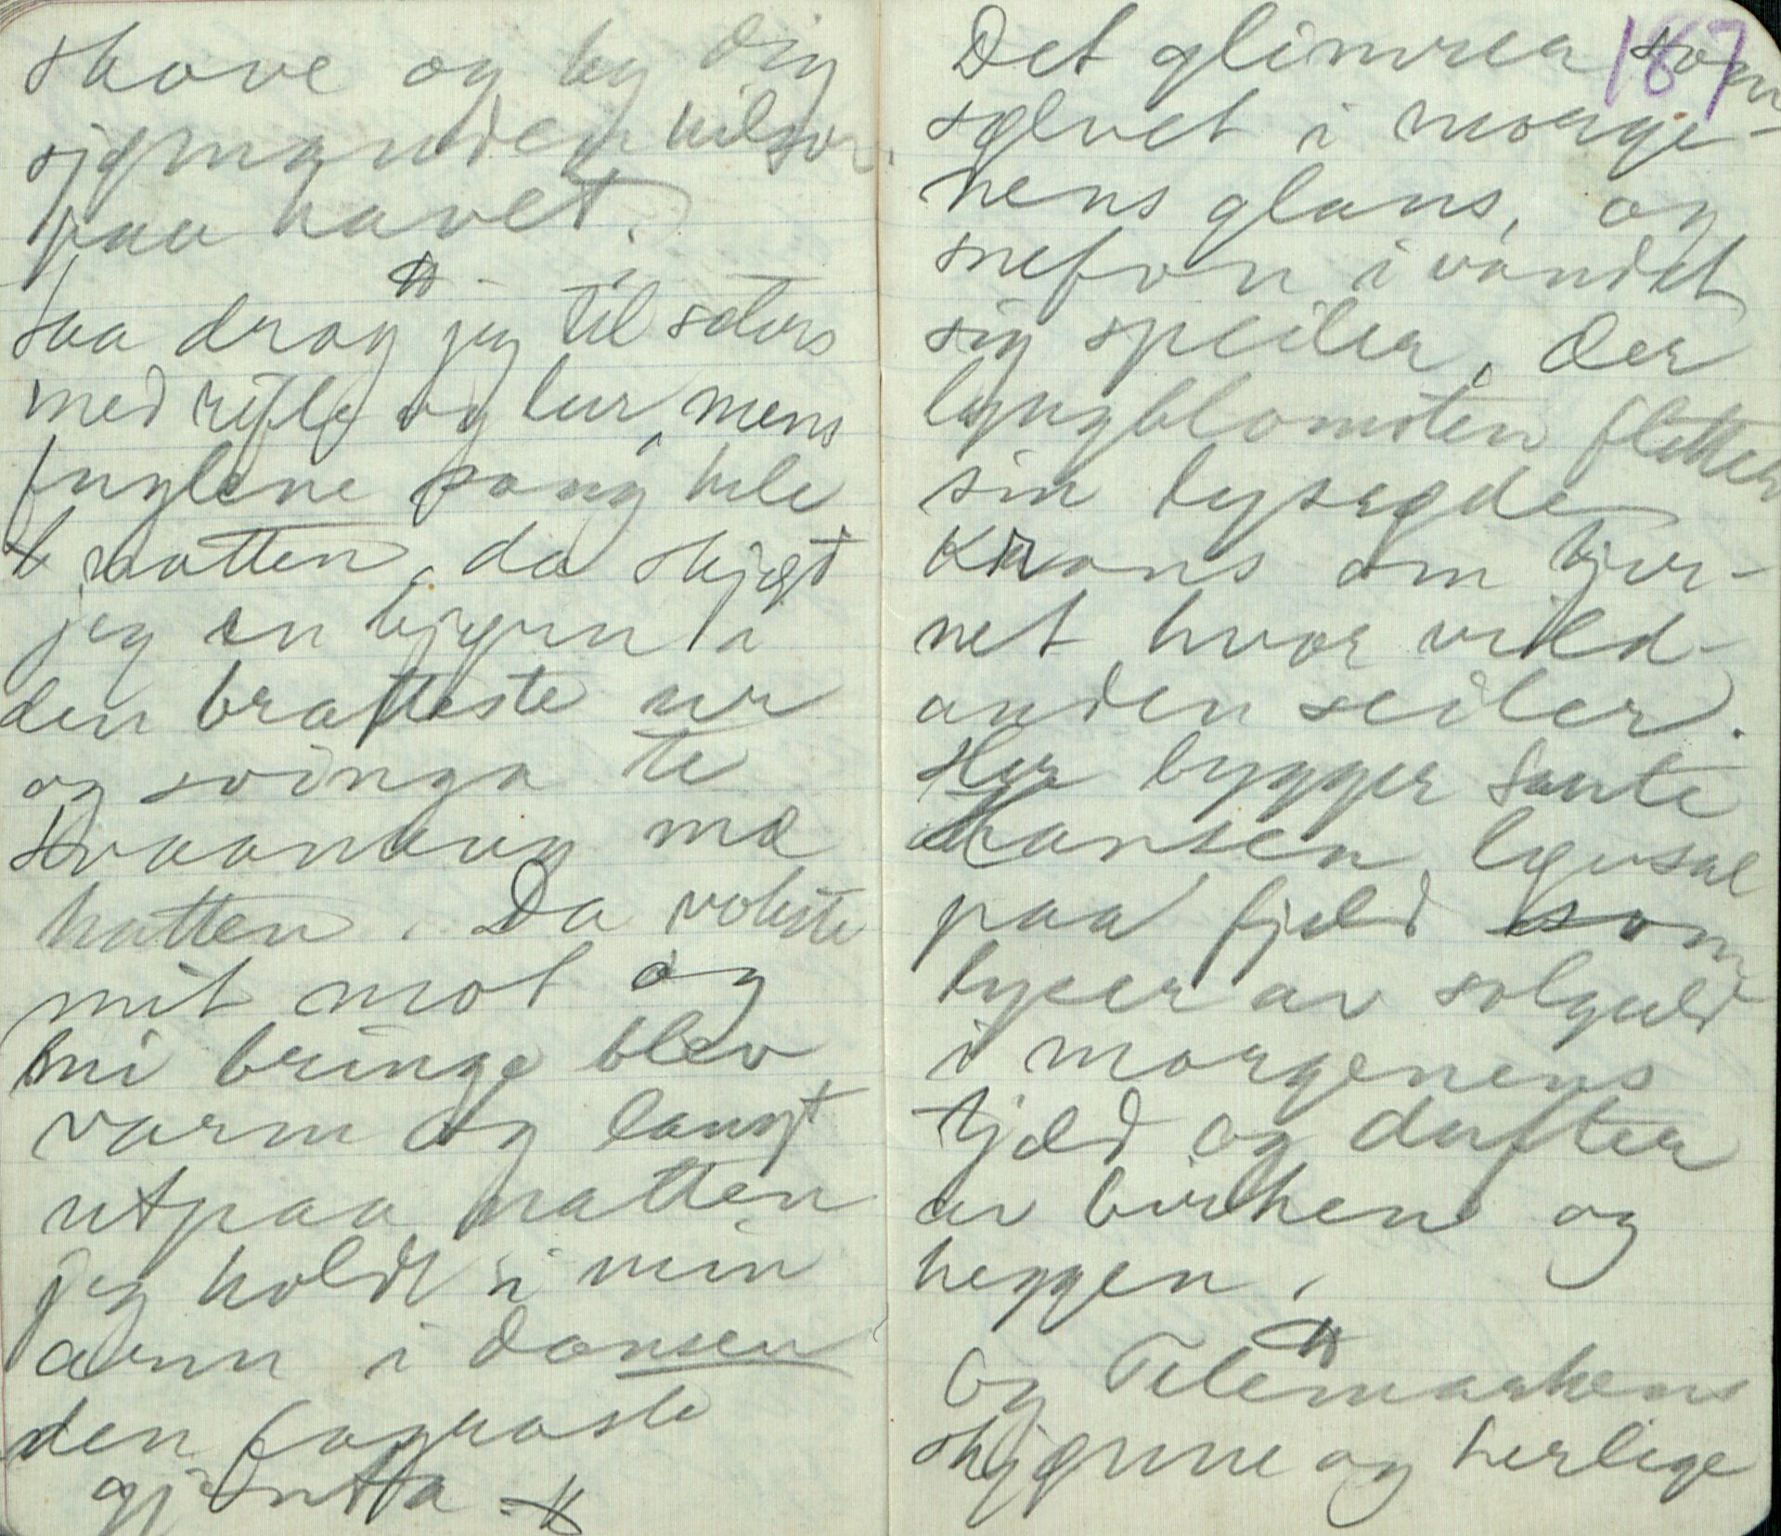 skove og by dig
sjømanden hilser
paa havet.
Saa drog jeg til seters
med rifle og lur, mens
fuglene sang hele
natten, da skjøt
jeg en bjørn i
den bratteste ur
og svinga te
Svaanaug me
hatten. Da vokste
mit mot og
mi bringe blev
varm og langt
utpaa natten
jeg holdt i min
arm i dansen
den fagraste
gjenta
187
Det glimrer som
sølvet i morge-
nens glans, og
snefon i vandet
sig speiler, der
lyngblomsten fletter
sin lysrøde
Krans om tjer-
net hvor vild-
anden seiler.
Her bygger Sante
Hansen løvsal
paa fjeld som
lyser av solguld
i morgenens
tjeld og dufter
av birken og
heggen.
Og Telemarkens
skjønne og herlige